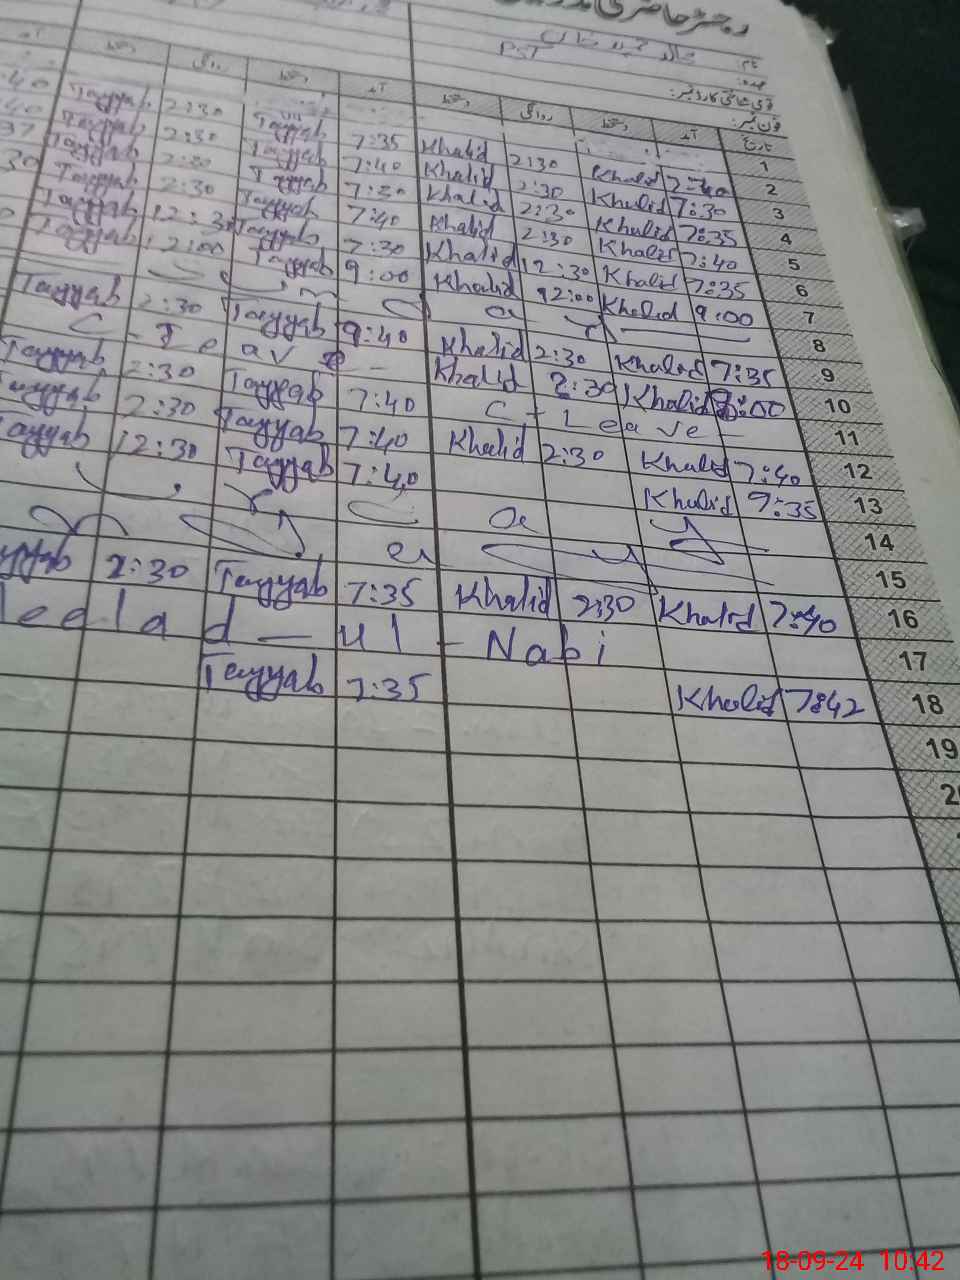 رجسٹر حاضری
نام:
عہدہ: PST
قومی شناختی کارڈ نمبر:
فون نمبر:
تاریخ آمد دستخط روانگی دستخط آمد دستخط روانگی دستخط آمد
1
2 7:40 Khalid 2:30 Khalid 7:35 Tayyab 2:30 Tayyab :40
3 7:30 Khalid 2:30 Khalid 7:40 Tayyab 2:30 Tayyab :40
4 7:35 Khalid 2:30 Khalid 7:30 Tayyab 2:30 Tayyab 37
5 7:40 Khalid 2:30 Khalid 7:40 Tayyab 2:30 Tayyab 30
6 7:35 Khalid 12:30 Khalid 7:30 Tayyab 12:30 Tayyab
7 9:00 Khalid 12:00 Khalid 9:00 Tayyab 12:00 Tayyab
8
9 7:35 Khalid 2:30 Khalid 9:40 Tayyab 2:30 Tayyab
10 8:00 Khalid 2:30 Khalid C - Leave -
11 C - Leave - 7:40 Tayyab 2:30 Tayyab
12 7:40 Khalid 2:30 Khalid 7:40 Tayyab 2:30 Tayyab
13 9:35 Khalid 7:40 Tayyab 12:30 Tayyab
14
15
16 7:40 Khalid 2:30 Khalid 7:35 Tayyab 2:30 yyab
17 leelad - ul - Nabi
18 7:42 Khalid 7:35 Tayyab
19
18-09-24 10:42